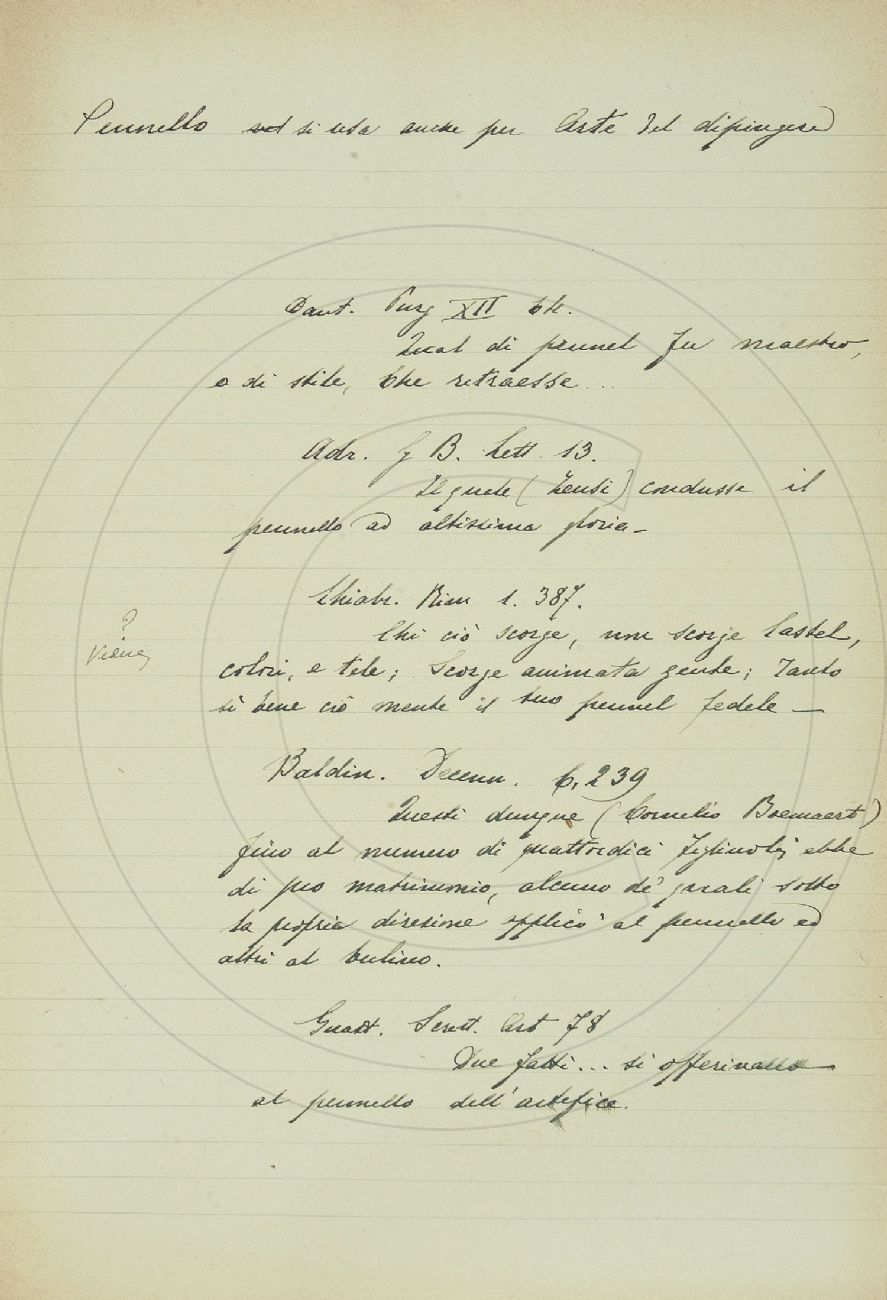 Pennello si usa anche per Arte del dipingere
Dant. Purg XII 64.
Qual di pennel fu maestro,
o di stile, Che ritraesse ...
Adr. G B. Lett 13.
Il quale (Zeusi) condusse il
pennello ad altissima gloria -
Chiabr. Rim 1. 387.
Chi ciò scorge, non scorge
colori, e tele; Scorge animata gente; Tanto
sì bene ciò mente il tuo pennel fedele -
?
Baldin. Decenn. 6, 239
Questi dunque (Cornelio Bloemaert)
fino al numero di quattordici figliuoli ebbe
di suo matrimonio, alcuno de' quali sotto
la propria direzione applicò al pennello ed
altri al bulino.
Guast. Scritt. Art 78
Due fatti... si offerivano
al pennello dell'artefice.